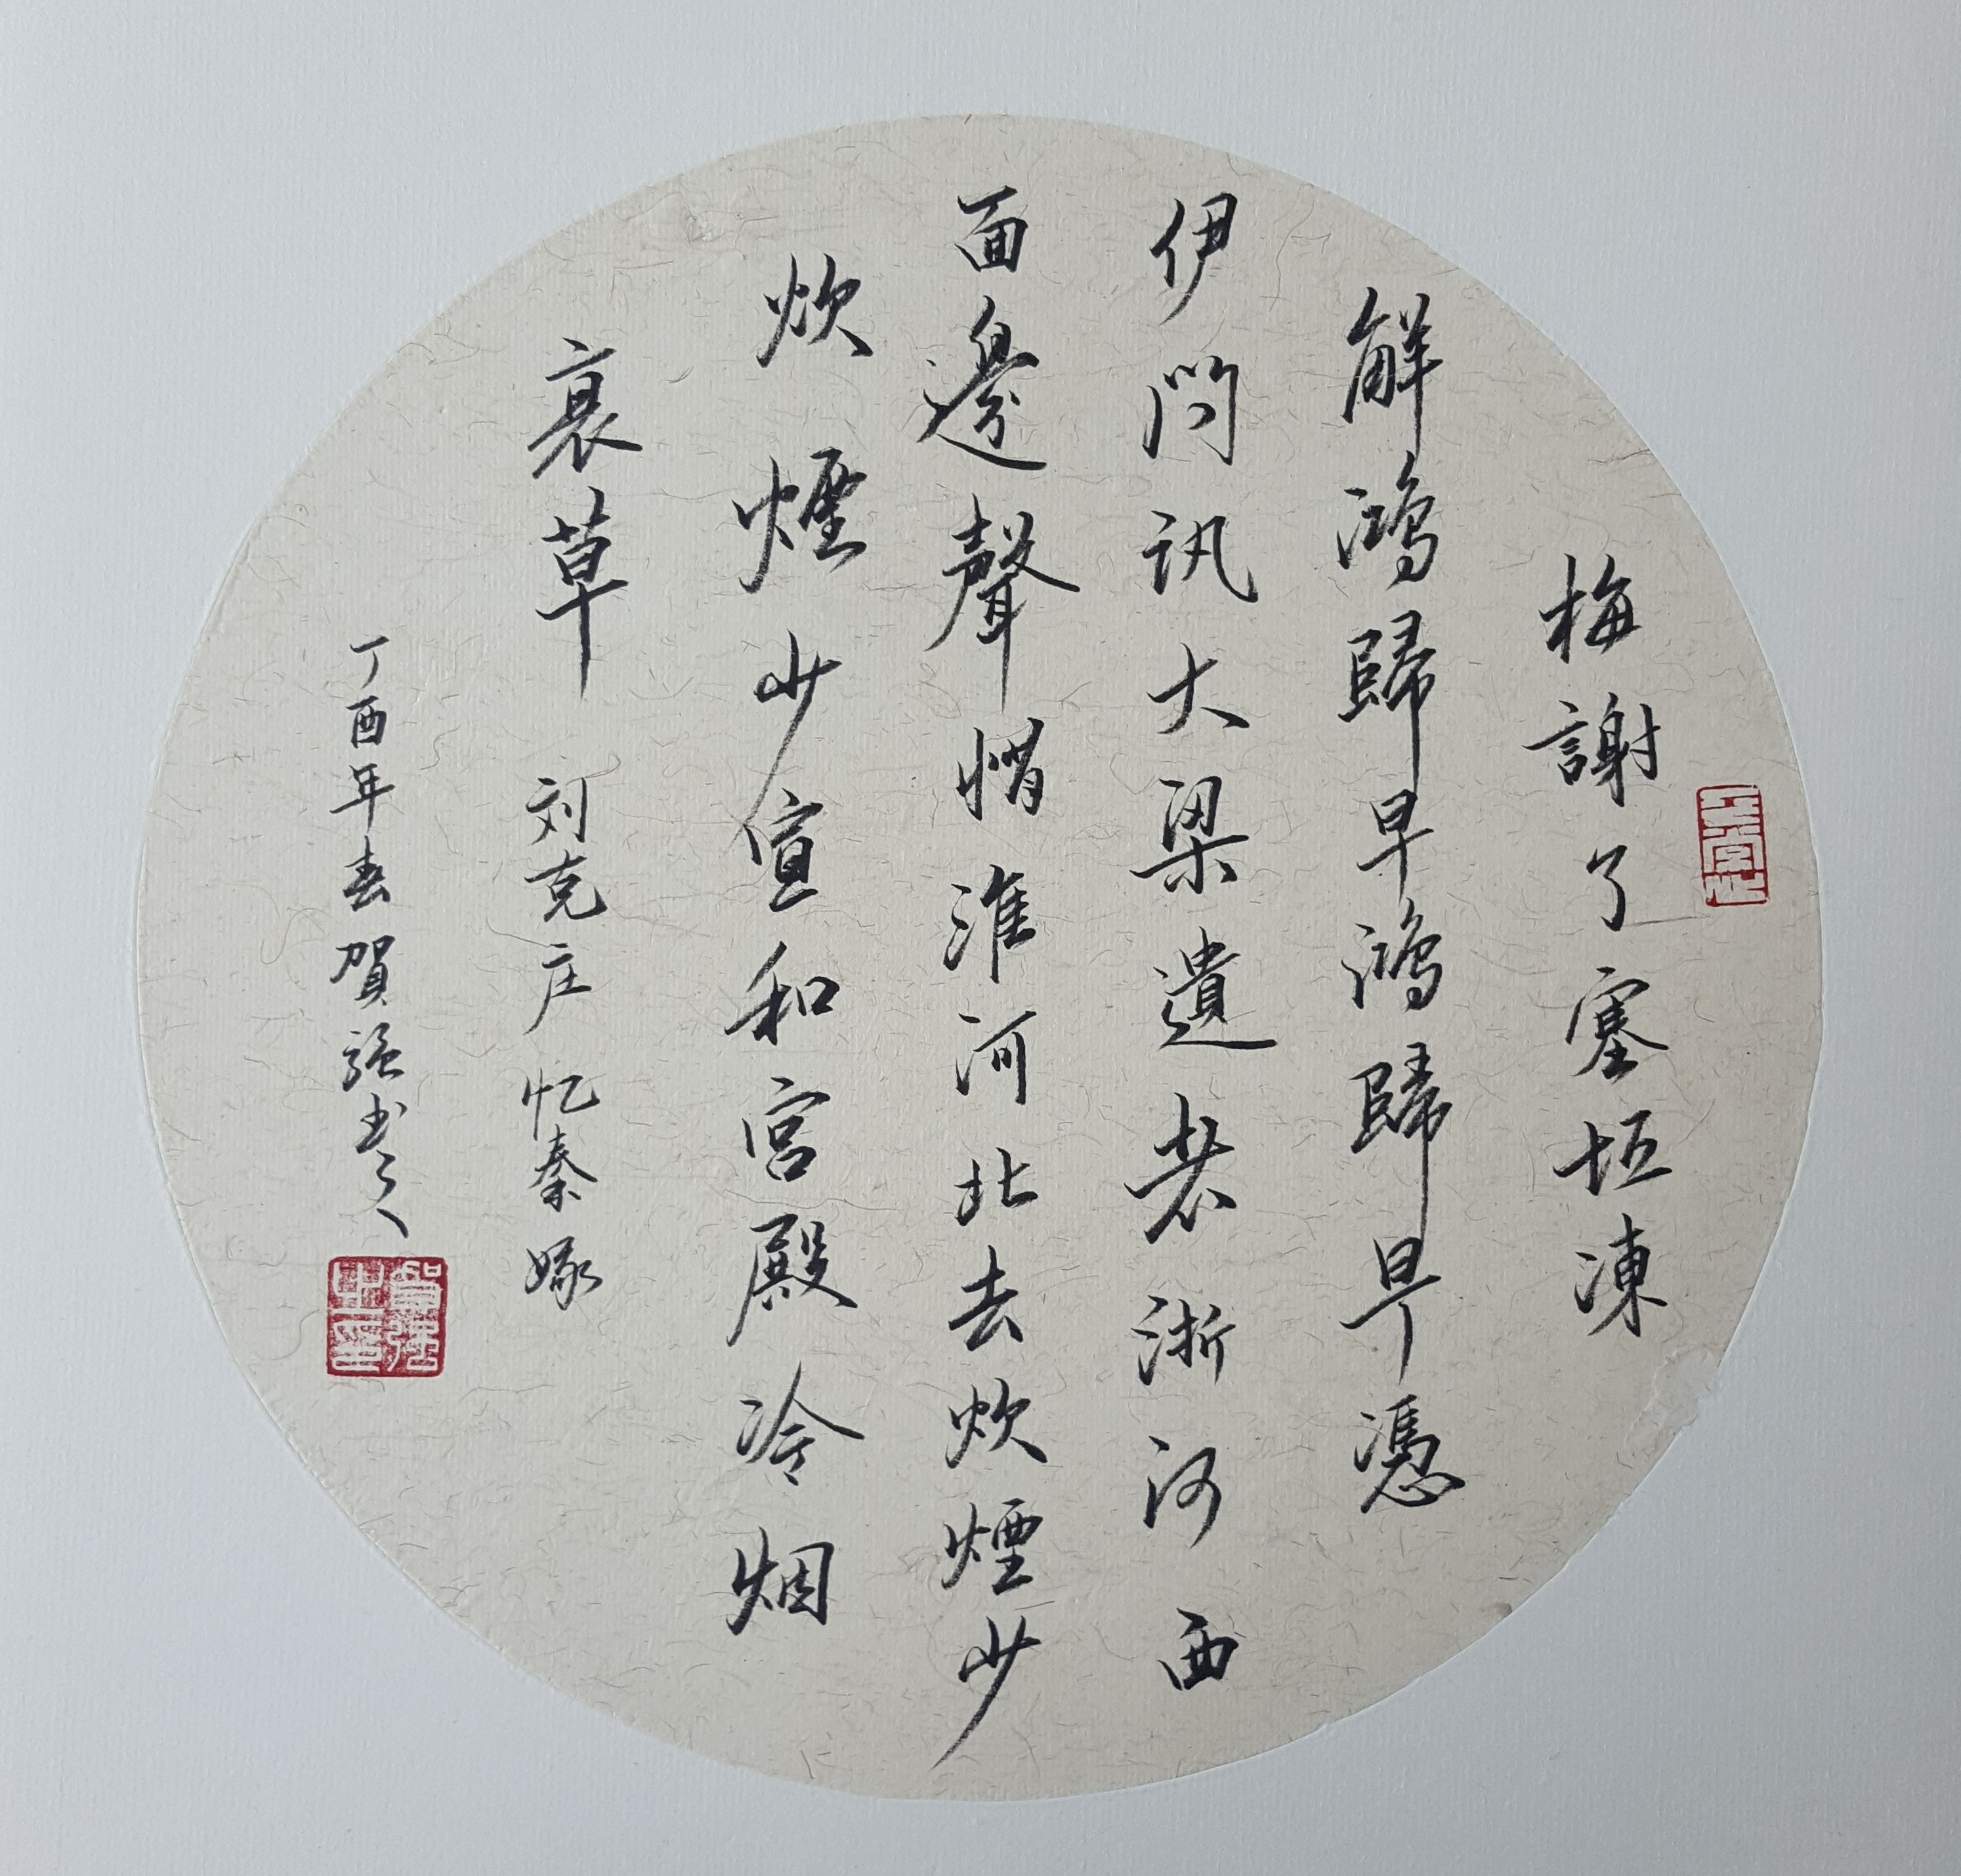 梅謝了塞垣凍
解鴻歸早鴻歸早憑
伊問訊大梁遺老浙河西
面邊聲悄淮河北去炊煙少
炊煙少宣和宮殿冷烟
衰草 刘克庄 忆秦娥
丁酉年春賀强书之
賀强之印